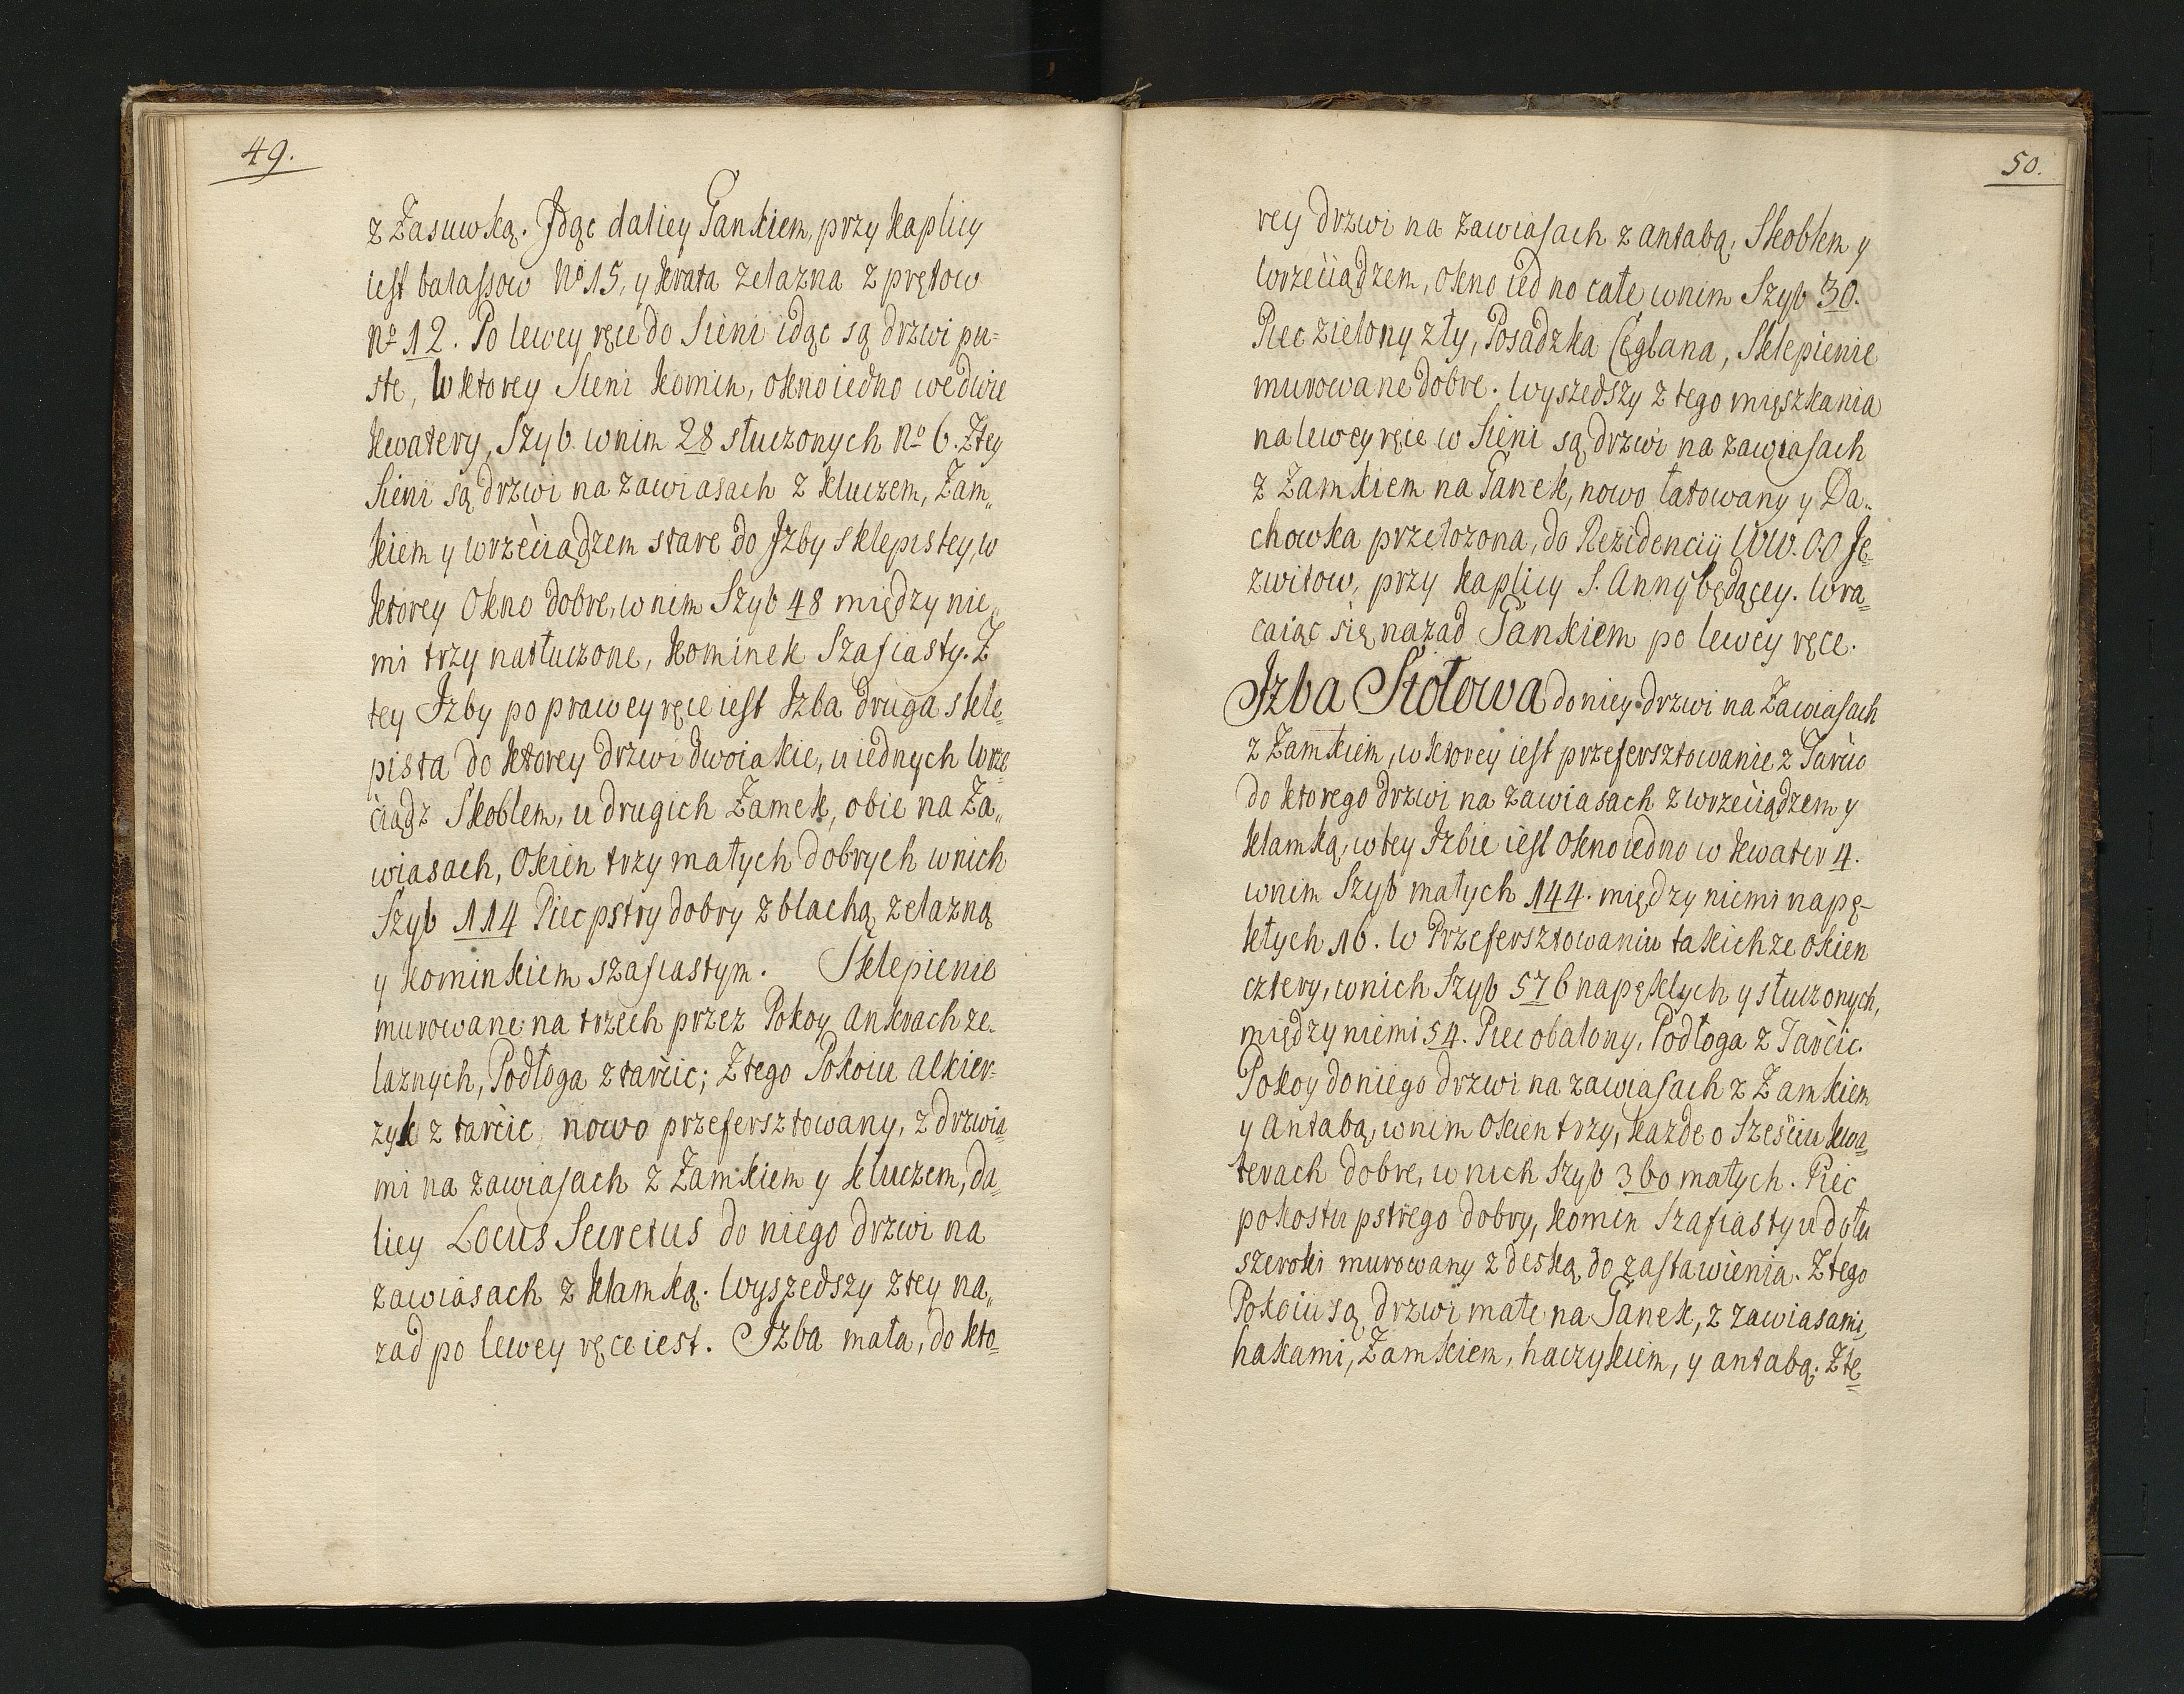 49.
z Zasuwką. Jdąc daliey Gankiem, przy kaplicy
iest balassow No 15, y krata zelazna z prętow
No 12. Po lewey ręce do Sieni idąc są drzwi pu=
ste, w ktorey Sieni komin, okno iedno we dwie
kwatery, Szyb w nim 28 stłuczonych No 6. Z tey
Sieni są drzwi na zawiasach z kluczem, Zam„
kiem y wrzeciądzem stare do Jzby sklepistey, w
ktorey Okno dobre, w nim Szyb 48 między nie„
mi trzy natłuczone, kominek Szafiasty. Z
tey Jzby po prawey ręce iest Jzba druga skle=
pista do ktorey drzwi dwoiakie, u iednych Wrze=
ciądz Skoblem, u drugich Zamek, obie na Za„
wiasach, Okien trzy małych dobrych w nich
Szyb 114 Piec pstry dobry z blachą zelazną
y kominkiem szafiastym. Sklepienie
murowane na trzech przez Pokoy ankrach ze=
laznych, Podłoga z tarcic; Z tego Pokoiu alkier=
zyk z tarcic nowo przefersztowany, z drzwia=
mi na zawiasach z Zamkiem y kluczem, da=
liey Locus Secretus do niego drzwi na
zawiasach z klamką. Wyszedszy z tey na„
zad po lewey ręce iest. Jzba mała, do kto=
50.
rey drzwi na zawiasach z antabą, Skoblem y
wrzeciądzem, okno iedno całe w nim Szyb 30.
Piec zielony zły, Posadzka Ceglana, Sklepienie
murowane dobre. Wyszedszy z tego mięszkania
na lewey ręce w Sieni są drzwi na zawiasach
z Zamkiem na Ganek, nowo łatowany y Da„
chowka przełozona, do Rezidencii WW. OO Je=
zwitow, przy kaplicy S. Anny będącey. Wra=
caiąc się nazad Gankiem po lewey ręce.
Jzba Stołowa do niey drzwi na Zawiasach
z Zamkiem, w ktorey iest przefersztowanie z Tarcic
do ktorego drzwi na zawiasach z wrzeciądzem y
klamką, w tey Jzbie iest Okno iedno w kwater 4.
w nim Szyb małych 144. między niemi napę=
kłych 16. w Przefersztowaniu takichze okien
cztery, w nich Szyb 576 napękłych y stłuczonych,
między niemi 54. Piec obalony, Podłoga z Tarcic.
Pokoy do niego drzwi na zawiasach z Zamkiem
y antabą, w nim Okien trzy, kazde o sześciu kwa=
terach dobre, w nich Szyb 360 małych. Piec
pokostu pstrego dobry, komin Szafiasty u dołu
szeroki murowany z deską do zastawienia. Z tego
Pokoiu są drzwi małe na Ganek, z zawiasami,
hakami, Zamkiem, haczykiem, y antabą. Z te=